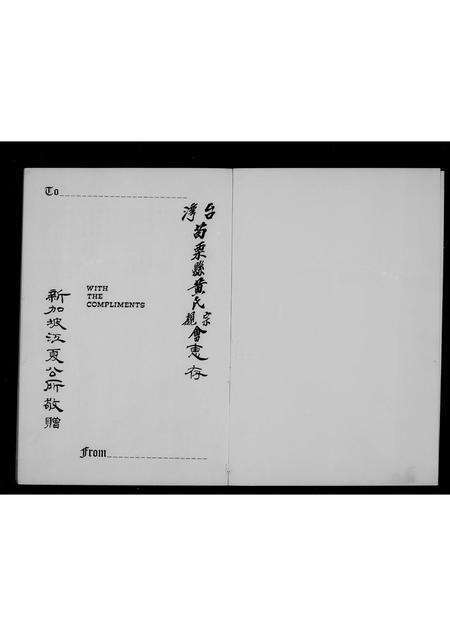 To
台湾苗栗縣黃氏宗親會惠存
WITH
THE
COMPLIMENTS
新加坡江夏公所敬贈
From